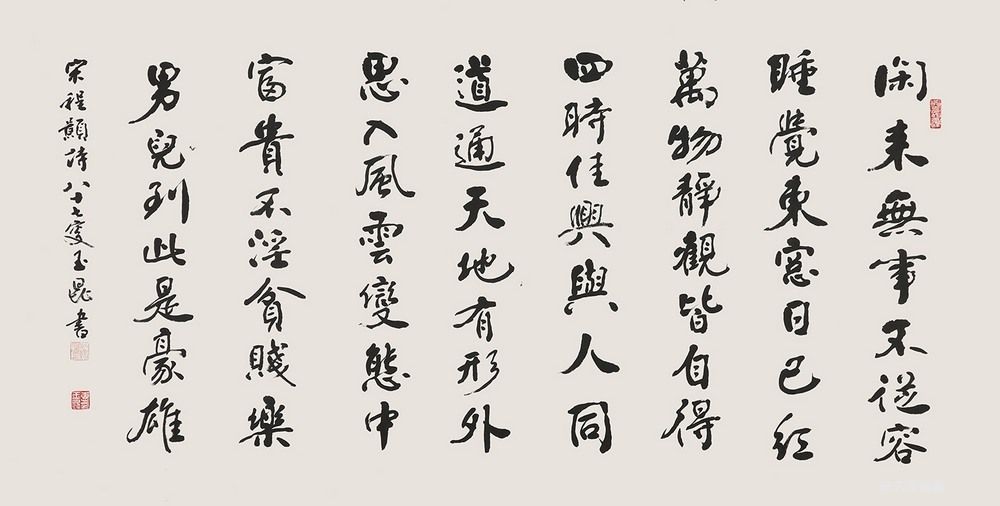 閑来無事不從容
睡覺東窓日已紅
萬物靜觀皆自得
四時佳興與人同
道通天地有形外
思入風雲變態中
富貴不淫貧賤樂
男兒到此是豪雄
宋程顥詩八十七叟玉崑書